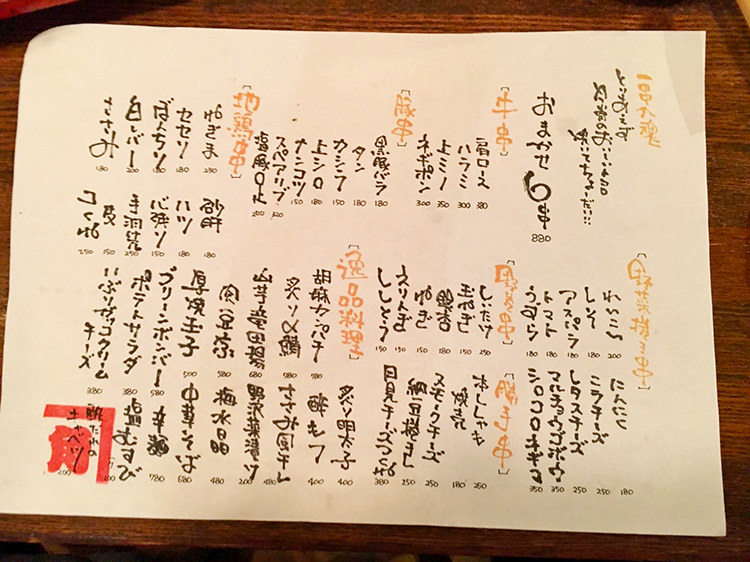 一品入魂
とりあえず
おまかせ6串 880
[牛串]
肩ロース 380
ハラミ 300
上ミノ 350
ネギポン 300
[豚串]
黒豚バラ 180
タン 180
カシラ 150
上シロ 180
ナンコツ 150
スペアリブ 320
200
[地鶏串]
ねぎま 250
セセリ 180
ぼんちり 180
白レバー 200
ささみ 180
砂肝 180
ハツ 180
心残り 150
手羽先 250
皮 150
つくね 250
[野菜巻き串]
れんこん 200
しそ 150
アスパラ 180
トマト 180
うずら 180
にんにく 180
ニラチーズ 250
レタスチーズ 250
マルチョウゴボウ 350
シロコロネギマ 350
[野菜串]
しいたけ 250
玉ねぎ 150
銀杏 180
ねぎ 150
エリンギ 150
ししとう 150
[勝手串]
本ししゃも 250
焼売 180
スモークチーズ 250
納豆巻き 250
月見チーズつくね 380
[逸品料理]
胡麻カンパチ 580
炙り〆鯖 580
山芋竜田揚 480
肉豆腐 580
厚焼玉子 500
グリーンボンバー 580
ポテトサラダ 380
いぶりガッコクリームチーズ 380
炙り明太子 400
酢もつ 400
ささみ風干し 480
野沢菜漬け 200
梅水晶 480
中華そば 680
辛麺 780
塩むすび 200
酢だれのキャベツ 200